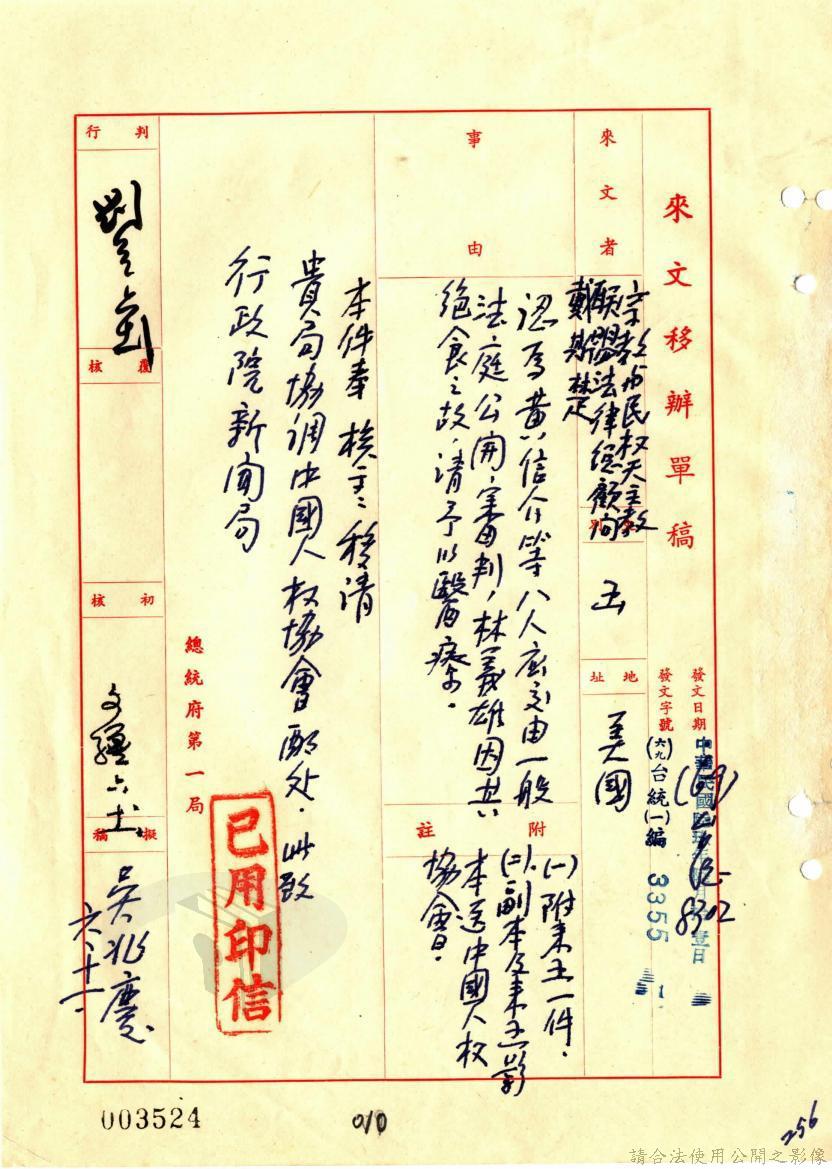 來文移辦單稿
發文日期
中華民國陸玖年 月 壹日
發文字號
(六九)台統(一)編 3355 號
來文者
宗教與民權天主教
聯盟法律總顧問
戴 林
別
函
地址
美國
事由
認為黃信介等八人应交由一般
法庭公開審判,林義雄因其
絕食之故,請予以醫療。
附註
(一)附來函一件。
(二)副本及來函影
本送中國人权
協會。
本件奉 核示:移請
貴局協調中國人权協會酌处。此致
行政院新聞局
總統府第一局
已用印信
判行
覆核
初核
擬稿
吳兆慶
六、十一
8302
003524
010
256
請合法使用公開之影像